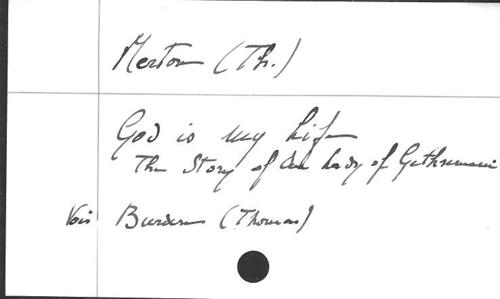 Merton (Th.)
God is my Life
The Story of Our Lady of Gethsemani
Voir Burden (Thomas)